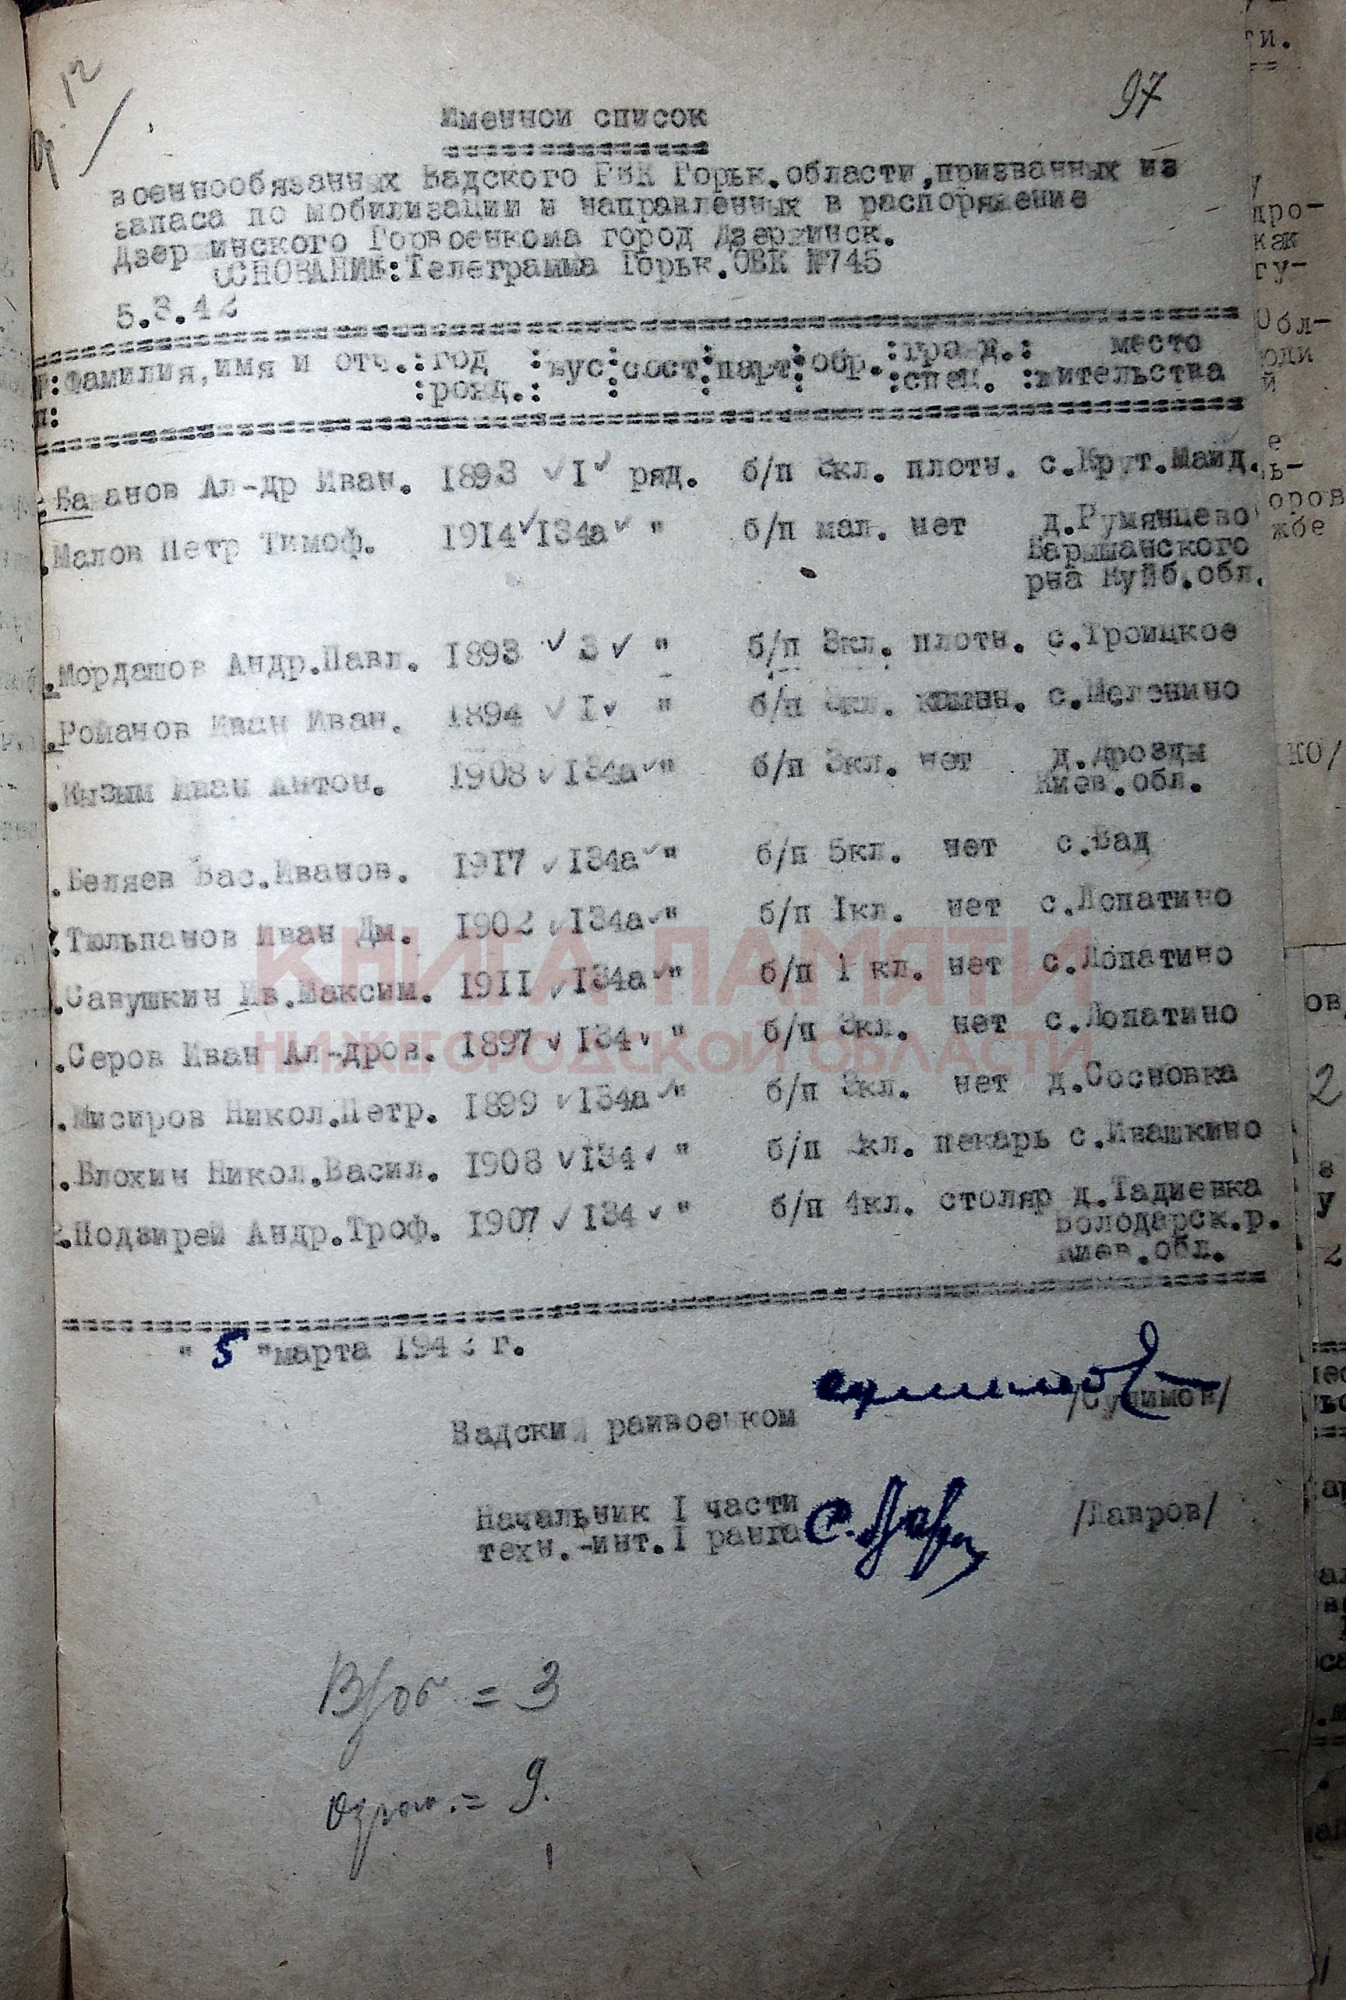 12
97
Именной список
военнообязанных Вадского РВК Горьк.области,призванных из
запаса по мобилизации и направленных в распоряжение
Дзержинского Горвоенкома город Дзержинск.
ОСНОВАНИЕ:Телеграмма Горьк.ОВК №745
5.3.42
№:Фамилия,имя и отч.:год :вус:сост:парт:обр.:гражд.: место
п: :рожд.: : : : :спец. :жительства
Ба анов Ал-др Иван. 1893 ✓ I ✓ ряд. б/п 3кл. плотн. с.Крут.Майд.
.Малов Петр Тимоф. 1914 ✓ 134а ✓ " б/п мал. нет д.Румянцево
Барышанского
рна Куйб.обл.
.Мордашов Андр.Павл. 1893 ✓ 3 ✓ " б/п 3кл. плотн. с.Троицкое
.Романов Иван Иван. 1894 ✓ I ✓ " б/п кл. с.Меленино
.Кызым Иван Антон. 1908 ✓ 134а ✓ " б/п 3кл. нет д.Дрозды
Киев.обл.
.Беляев Вас.Иванов. 1917 ✓ 134а ✓ " б/п 5кл. нет с.Вад
.Тюльпанов Иван Дм. 1902 ✓ 134а ✓ " б/п 1кл. нет с.Лопатино
.Савушкин Ив.Максим. 1911 ✓ 134а ✓ " б/п 1 кл. нет с.Лопатино
.Серов Иван Ал-дров. 1897 ✓ 134 ✓ " б/п 3кл. нет с.Лопатино
.Мисиров Никол.Петр. 1899 ✓ 134а ✓ " б/п 3кл. нет д.Сосновка
.Блохин Никол.Васил. 1908 ✓ 134 ✓ " б/п кл. пекарь с.Ивашкино
2.Подзирей Андр.Троф. 1907 ✓ 134 ✓ " б/п 4кл. столяр д.Тадиевка
Володарск.р.
Киев.обл.
КНИГА ПАМЯТИ
НИЖЕГОРОДСКОЙ ОБЛАСТИ
" 5 "марта 194 г.
Вадский райвоенком /Сулимов/
Начальник I части
техн.-инт.I ранга С.Лавр /Лавров/
= 3
= 9.